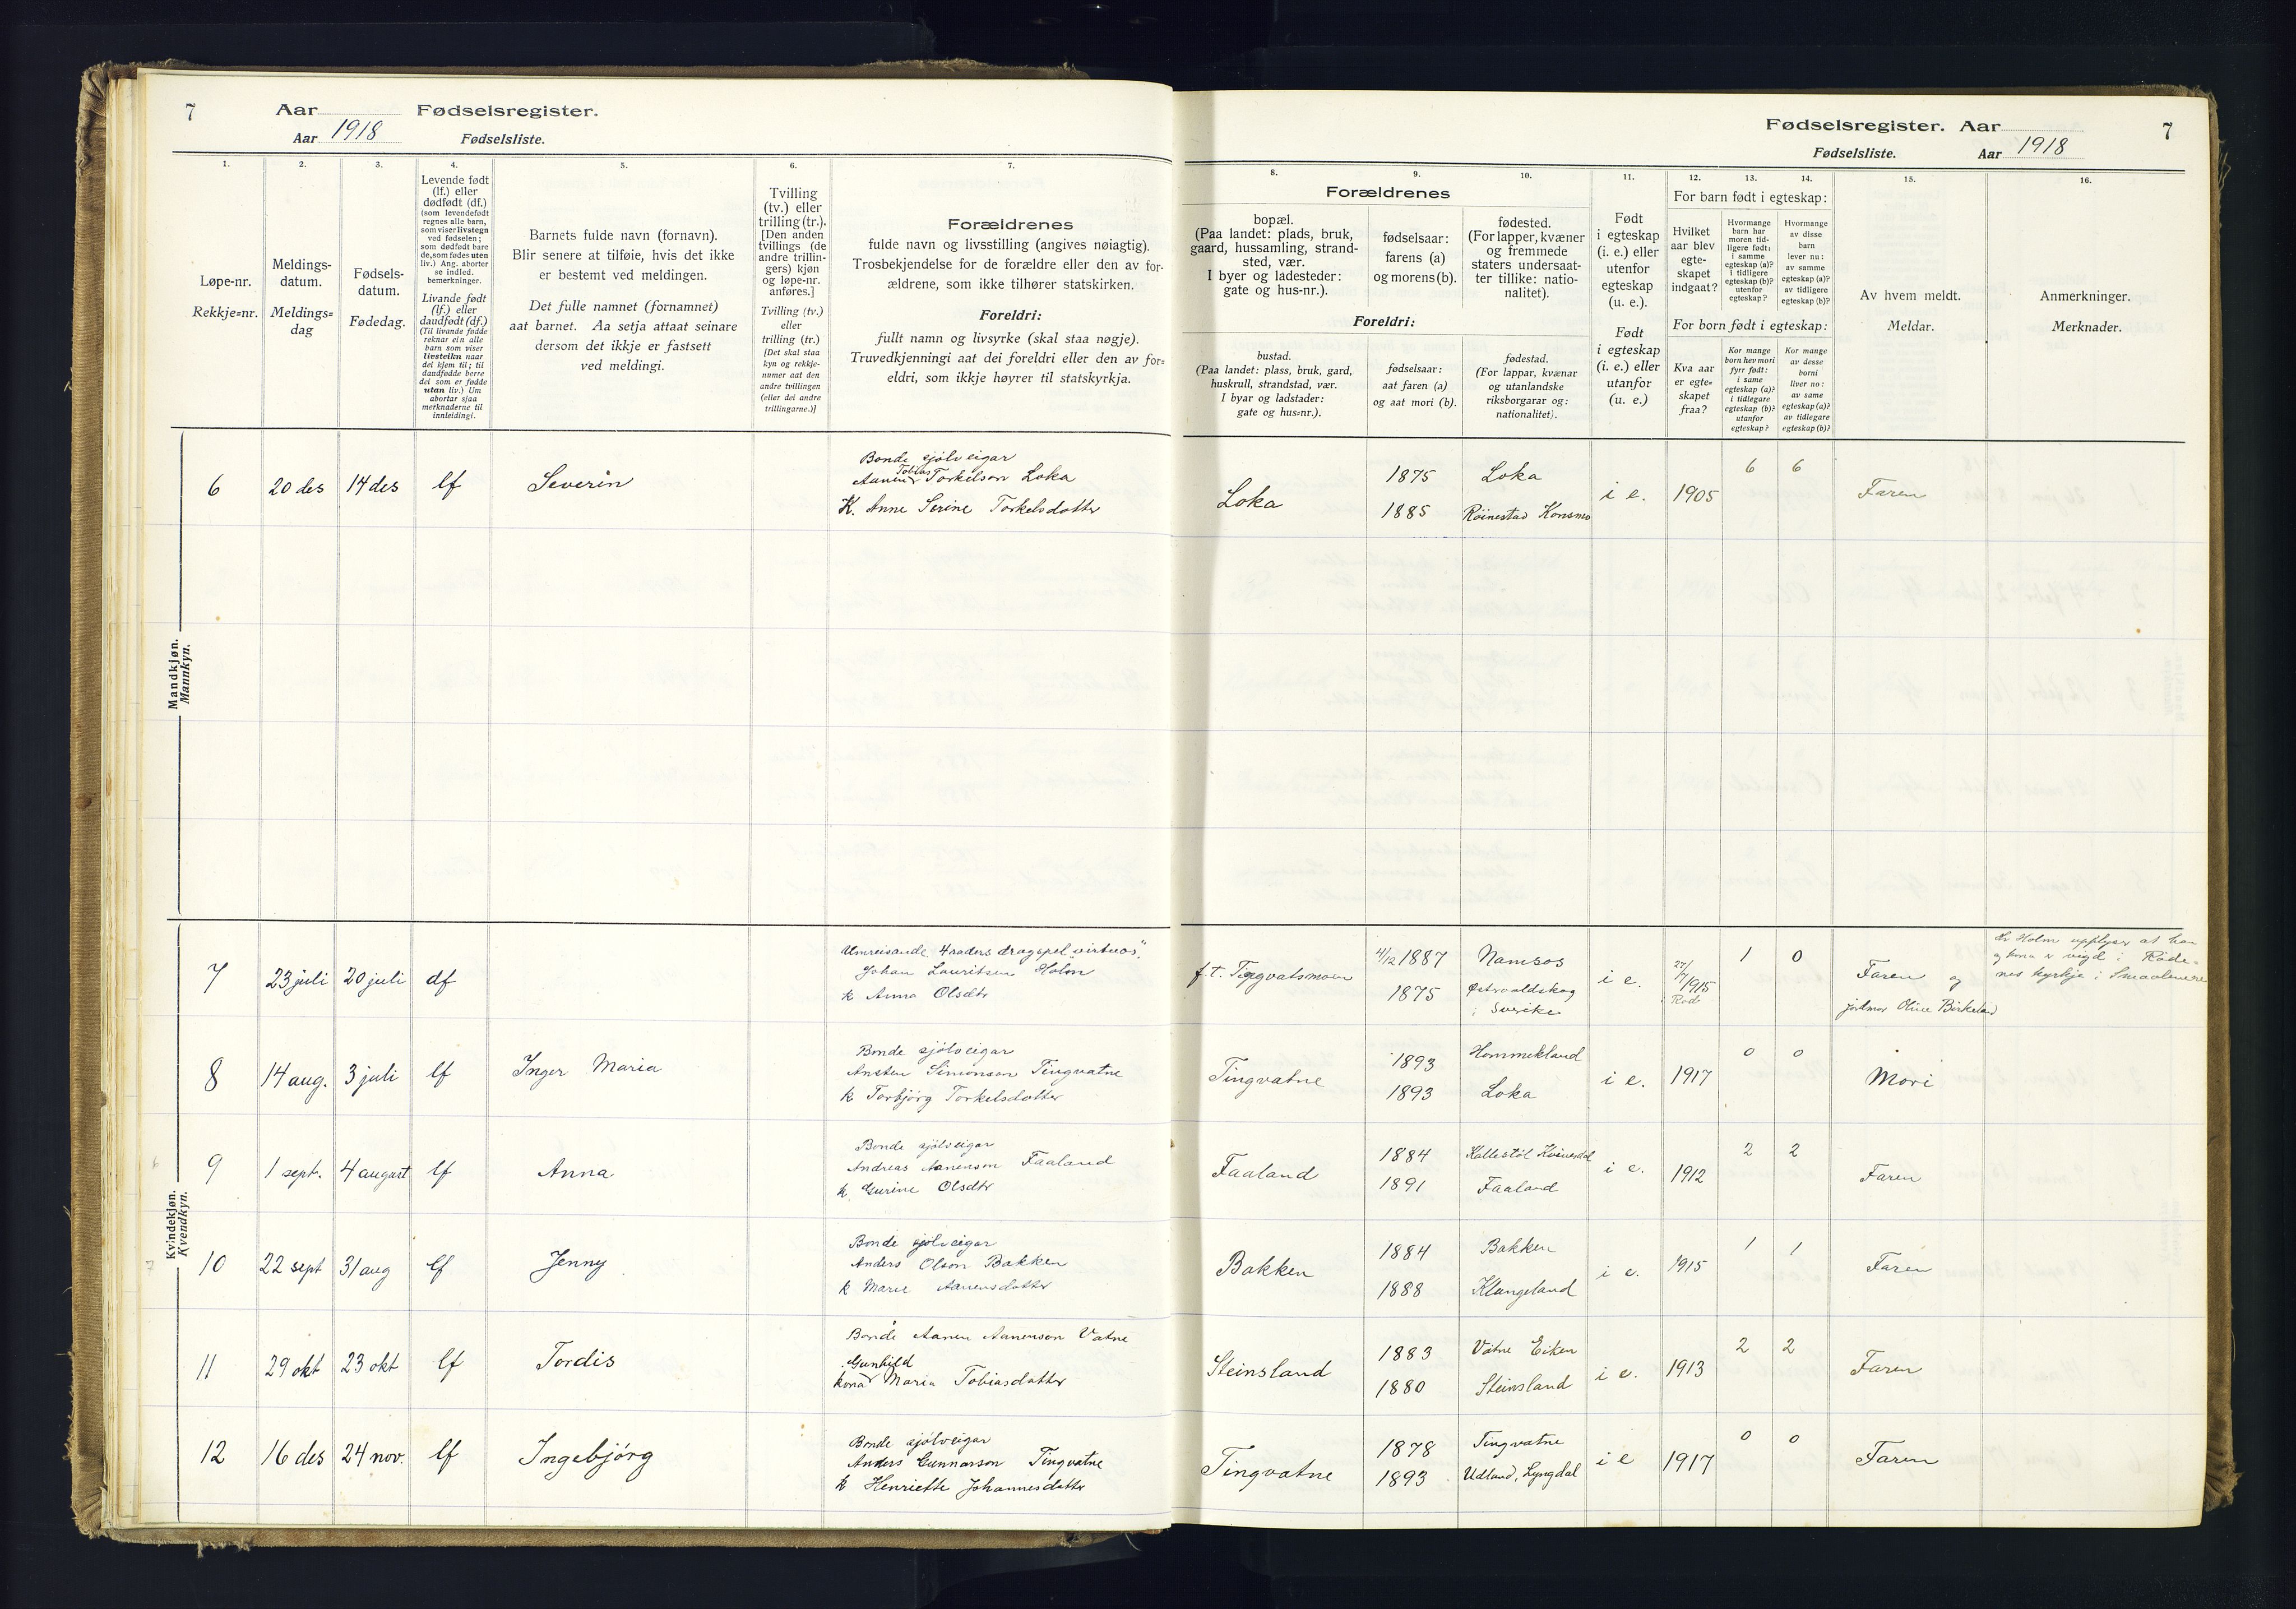 7 Aar Fødselsregister.
Aar 1918 Fødselsliste.
1. 2. 3. 4. 5. 6. 7.
Løpe-nr.
Rekkje=nr.
Meldings-
datum.
Meldings=
dag
Fødsels-
datum.
Fødedag.
Levende født
(lf.) eller
dødfødt (df.)
(som levendefødt
regnes alle barn,
som viser livstegn
ved fødselen;
som dødfødt bare
de, som fødes uten
liv.) Ang. aborter
se indled.
bemerkninger.
Livande født
(lf.) eller
daudfødt (df.)
(Til livande fødde
reknar ein alle
barn som viser
livsteikn naar
dei kjem til; til
daudfødde berre
dei som er fødde
utan liv.) Um
abortar sjaa
merknaderne til
innleidingi.
Barnets fulde navn (fornavn).
Blir senere at tilføie, hvis det ikke
er bestemt ved meldingen.
Det fulle namnet (fornamnet)
aat barnet. Aa setja attaat seinare
dersom det ikkje er fastsett
ved meldingi.
Tvilling
(tv.) eller
trilling (tr.).
[Den anden
tvillings (de
andre trillin-
gers) kjøn
og løpe-nr.
anføres.]
Tvilling (tv.)
eller
trilling (tr.)
[Det skal staa
kyn og rekkje-
numer aat den
andre tvillingen
(eller dei andre
trillingarne.)]
Forældrenes
fulde navn og livsstilling (angives nøiagtig).
Trosbekjendelse for de forældre eller den av for-
ældrene, som ikke tilhører statskirken.
Foreldri:
fullt namn og livsyrke (skal staa nøgje).
Truvedkjenningi aat dei foreldri eller den av for=
eldri, som ikkje høyrer til statskyrkja.
Fødselsregister. Aar 7
Fødselsliste. Aar 1918
8. 9. 10. 11. 12. 13. 14. 15. 16.
Forældrenes
bopæl.
(Paa landet: plads, bruk,
gaard, hussamling, strand-
sted, vær.
I byer og ladesteder:
gate og hus-nr.).
fødselsaar:
farens (a)
og morens (b).
fødested.
(For lapper, kvæner
og fremmede
staters undersaat-
ter tillike: natio-
nalitet).
Foreldri:
bustad.
(Paa landet: plass, bruk, gard,
huskrull, strandstad, vær.
I byar og ladstader:
gate og hus=nr.).
fødselsaar:
aat faren (a)
og aat mori (b).
fødestad.
(For lappar, kvænar
og utanlandske
riksborgarar og:
nationalitet).
Født
i egteskap
(i. e.) eller
utenfor
egteskap
(u. e.).
Født
i egteskap
(i. e.) eller
utanfor
(u. e.)
For barn født i egteskap:
Hvilket
aar blev
egte-
skapet
indgaat?
Hvormange
barn har
moren tid-
ligere født:
i samme
egteskap (a)?
i tidligere
egteskap (b)?
utenfor
egteskap?
Hvormange
av disse
barn
lever nu:
av samme
egteskap (a)?
av tidligere
egteskap (b)?
For born født i egteskap:
Kva aar
er egte=
skapet
fraa?
Kor mange
born hev mori
fyrr født:
i same
egteskap (a)?
i tidlegare
egteskap (b)?
utanfor
egteskap?
Kor mange
av desse
borni
liver no:
av same
egteskap (a)?
av tidlegare
egteskap (b)?
Av hvem meldt.
Meldar.
Anmerkninger.
Merknader.
Mandkjøn.
Mannkyn.
6 20 des 14 des lf Severin
Bonde sjölveigar
Tobias
Aanen Torkelson Loka
K. Anne Serine Torkelsdotter
Loka 1875 Loka i e. 1905 6 6 Faren
1885 Röinestad Konsmo
Kvindekjøn.
Kvendkyn.
7 23 juli 20 juli df
Umreisande 4 raders dragspel "virtuos".
Johan Lauritsen Holm
k Anna Olsdtr
f. t. Tingvatsmoen 11/12 1887 Namsos i e. 27/7 1915 1 0 Faren og
1875 Østvoldskog
i Sverike
jordmor Olive Birkeland
Hr Holm upplyser at han
og kona er vigd i Röde-
nes kyrkje i Smaalenene
8 14 aug. 3 juli lf Inger Maria
Bonde sjölveigar
Ansten Simonson Tingvatne
k Torbjörg Torkelsdotter
Tingvatne 1893 Hommekland i e. 1917 0 0 Mori
1893 Loka
9 1 sept. 4 august lf Anna
Bonde sjölveigar
Andreas Aanenson Faaland
k Gurine Olsdtr
Faaland 1884 Kallestöl Kvinesdal i e. 1912 2 2 Faren
1891 Faaland
10 22 sept 31 aug lf Jenny
Bonde sjölveigar
Anders Olson Bakken
k Marie Aanensdotter
Bakken 1884 Bakken i e. 1915 1 1 Faren
1888 Klungeland
11 29 okt 23 okt lf Tordis
Bonde Aanen Aanenson Vatne
Gunhild
kona Maria Tobiasdotter
Steinsland 1883 Vatne Eiken i e. 1913 2 2 Faren
1880 Steinsland
12 16 des 24 nov. lf Ingebjörg
Bonde sjölveigar
Anders Gunnarson Tingvatne
k Henriette Johannesdotter
Tingvatne 1878 Tingvatne i e 1917 0 0 Faren
1893 Udland, Lyngdal